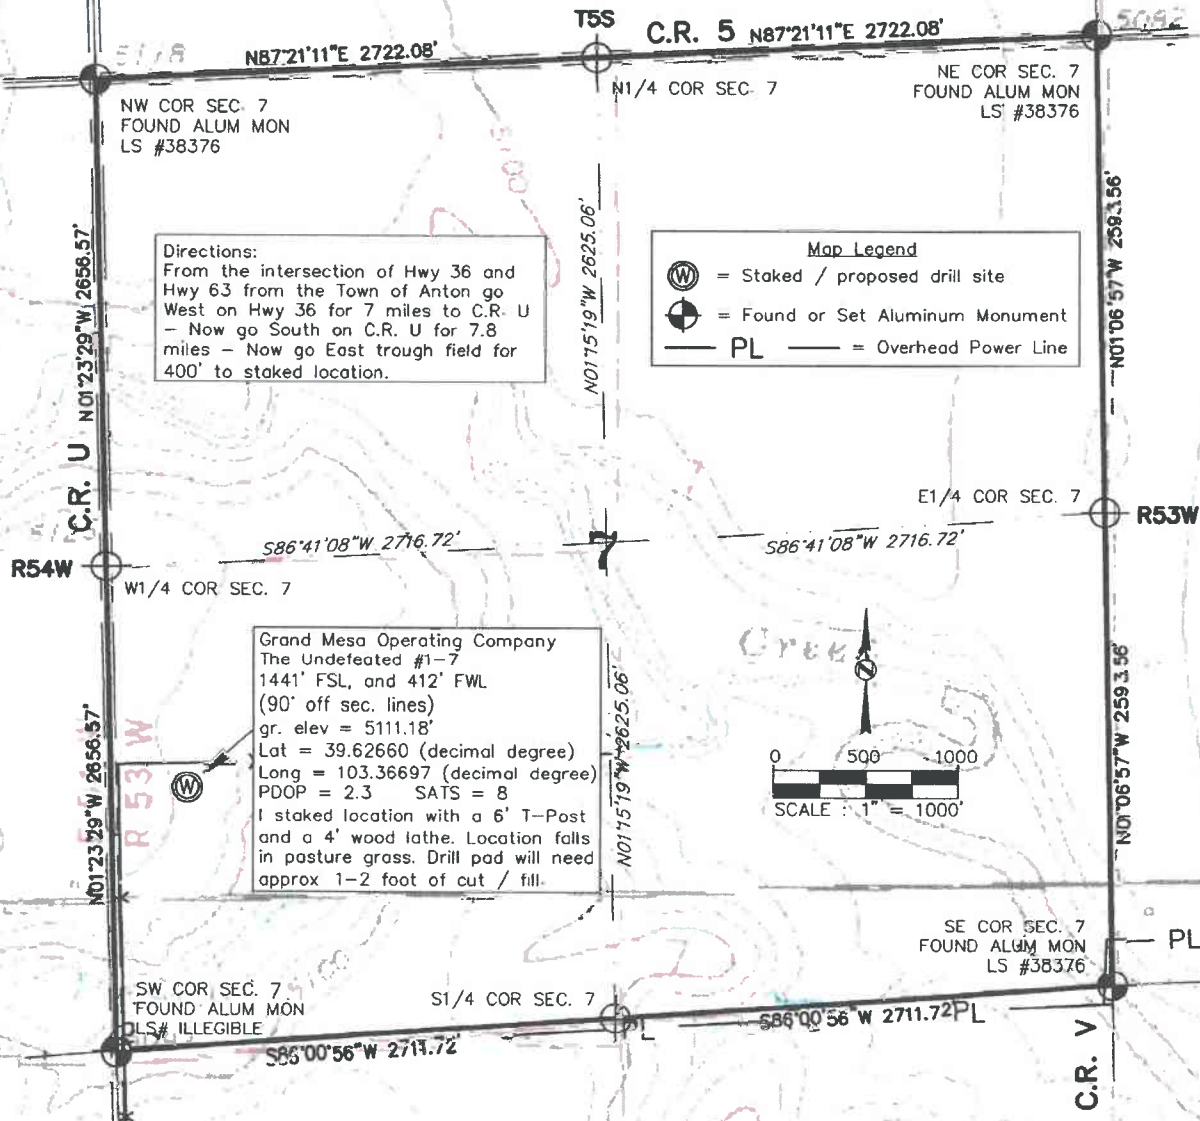 T5S
C.R. 5
N87°21'11"E 2722.08'
N87°21'11"E 2722.08'
5092
NW COR SEC. 7
FOUND ALUM MON
LS #38376
N1/4 COR SEC. 7
NE COR SEC. 7
FOUND ALUM MON
LS #38376
N01°23'29"W 2656.57'
C.R. U
N01°15'19"W 2625.06'
N01°06'57"W 2593.56'
Directions:
From the intersection of Hwy 36 and
Hwy 63 from the Town of Anton go
West on Hwy 36 for 7 miles to C.R. U
– Now go South on C.R. U for 7.8
miles – Now go East trough field for
400' to staked location.
Map Legend
W = Staked / proposed drill site
= Found or Set Aluminum Monument
PL = Overhead Power Line
E1/4 COR SEC. 7
R53W
S86°41'08"W 2716.72'
7
S86°41'08"W 2716.72'
R54W
W1/4 COR SEC. 7
Grand Mesa Operating Company
The Undefeated #1-7
1441' FSL, and 412' FWL
(90° off sec. lines)
gr. elev = 5111.18'
Lat = 39.62660 (decimal degree)
Long = 103.36697 (decimal degree)
PDOP = 2.3 SATS = 8
I staked location with a 6' T-Post
and a 4' wood lathe. Location falls
in pasture grass. Drill pad will need
approx 1-2 foot of cut / fill.
Creek
N
0 500 1000
SCALE : 1" = 1000'
N01°23'29"W 2656.57'
R 53 W
W
N01°15'19"W 2625.06'
N01°06'57"W 2593.56'
SE COR SEC. 7
FOUND ALUM MON
LS #38376
PL
SW COR SEC. 7
FOUND ALUM MON
LS# ILLEGIBLE
S1/4 COR SEC. 7
S86°00'56"W 2711.72'
S86°00'56"W 2711.72'
PL
C.R. V